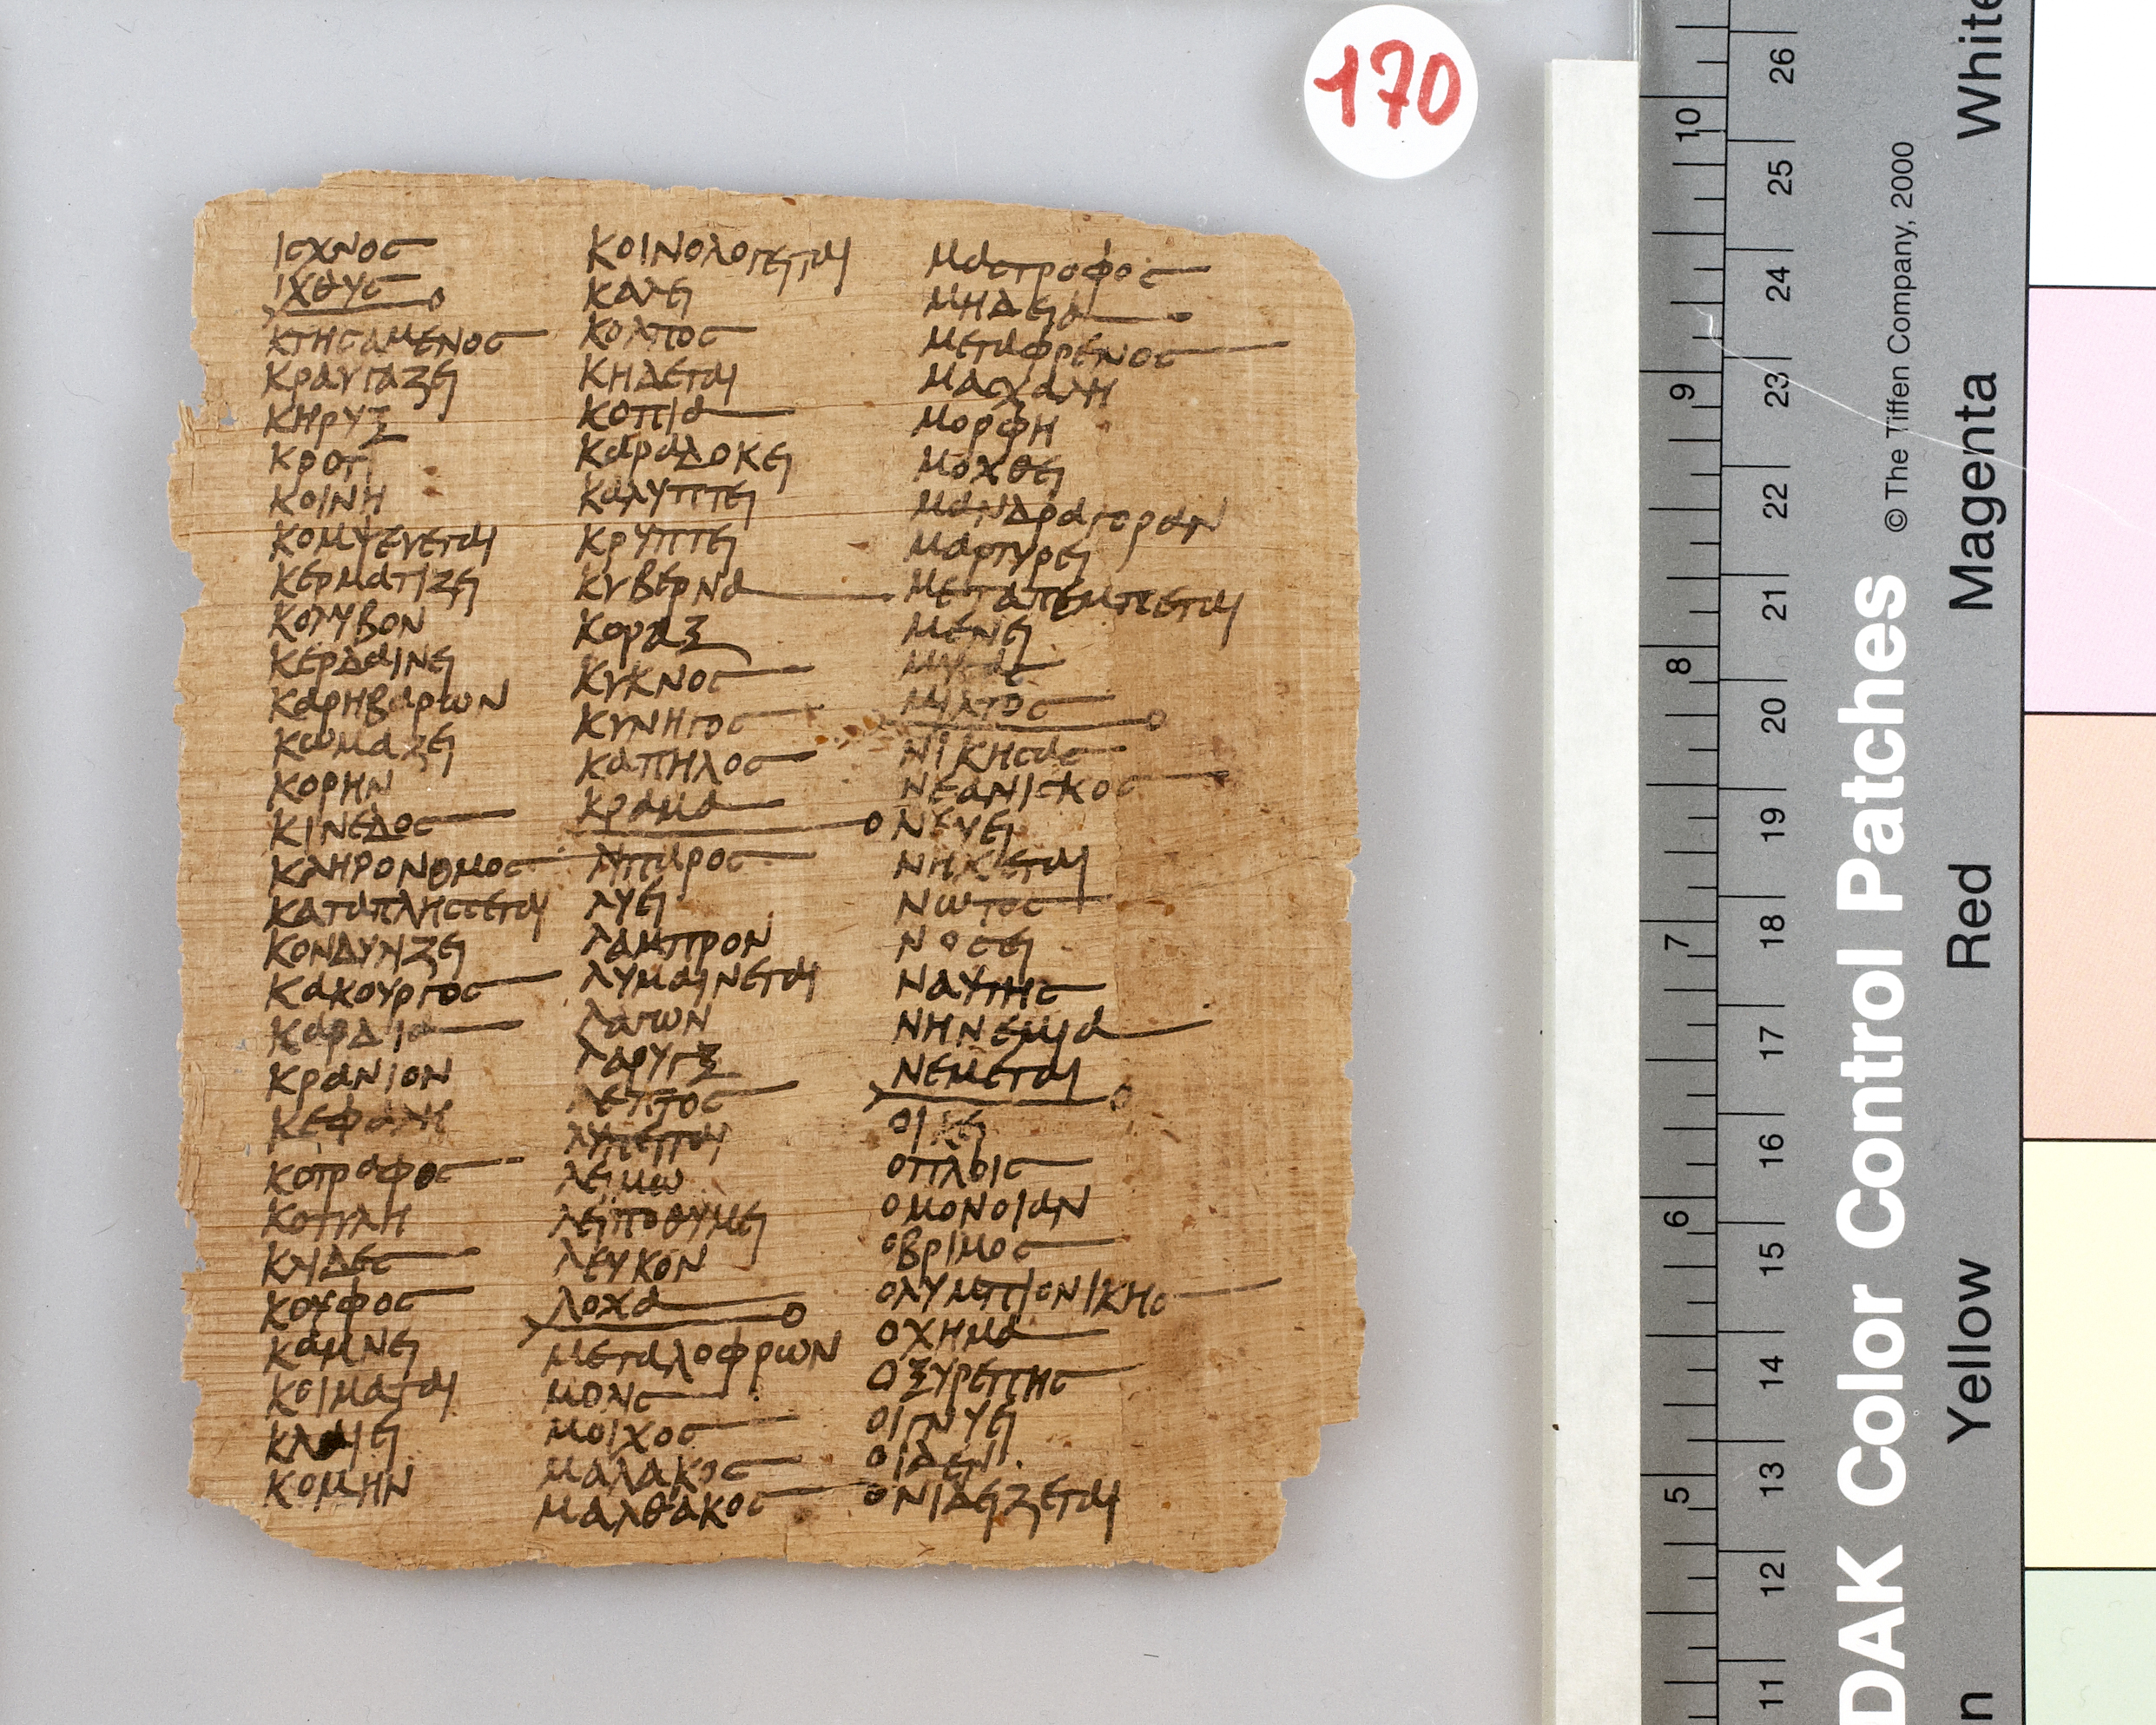 170
ΙϹΧΝΟϹ
ΙΧΘΥϹ
ΚΤΗϹΑΜΕΝΟϹ
ΚΡΑΥΓΑΖΕΙ
ΚΗΡΥΞ
ΚΡΟΤΙ
ΚΟΙΝΗ
ΚΟΜΨΕΥΕΤΑΙ
ΚΕΡΜΑΤΙΖΕΙ
ΚΟΛΥΒΟΝ
ΚΕΡΔΑΙΝΕΙ
ΚΑΡΗΒΑΡΙΩΝ
ΚΩΜΑΖΕΙ
ΚΟΡΗΝ
ΚΙΝΕΔΟϹ
ΚΛΗΡΟΝΟΜΟϹ
ΚΑΤΑΠΛΗϹϹΕΤΑΙ
ΚΟΝΔΥΛΙΖΕΙ
ΚΑΚΟΥΡΓΟϹ
ΚΑΡΔΙΑ
ΚΡΑΝΙΟΝ
ΚΕΦΑΛΗ
ΚΟΤΡΟΦΟϹ
ΚΟΤΥΛΗ
ΚΛΙΔΕϹ
ΚΟΥΦΟϹ
ΚΑΜΝΕΙ
ΚΟΙΜΑΤΑΙ
ΚΛΑΙΕΙ
ΚΟΜΗΝ
ΚΟΙΝΟΛΟΓΕΙΤΑΙ
ΚΑΛΕΙ
ΚΟΛΠΟϹ
ΚΗΔΕΤΑΙ
ΚΟΠΙΑ
ΚΑΡΑΔΟΚΕΙ
ΚΑΛΥΠΤΕΙ
ΚΡΥΠΤΕΙ
ΚΥΒΕΡΝΑ
ΚΟΡΑΞ
ΚΥΚΝΟϹ
ΚΥΝΗΓΟϹ
ΚΑΠΗΛΟϹ
ΚΡΑΜΑ
ΛΙΠΑΡΟϹ
ΛΥΕΙ
ΛΑΜΠΡΟΝ
ΛΥΜΑΙΝΕΤΑΙ
ΛΑΓΩΝ
ΛΑΡΥΓΞ
ΛΕΠΤΟϹ
ΛΥΠΕΙΤΑΙ
ΛΕΙΜΩ
ΛΕΙΠΟΘΥΜΕΙ
ΛΕΥΚΟΝ
ΛΟΧΑ
ΜΕΓΑΛΟΦΡΩΝ
ΜΟΝΙϹ
ΜΟΙΧΟϹ
ΜΑΛΑΚΟϹ
ΜΑΛΘΑΚΟϹ
ΜΑϹΤΡΟΦΟϹ
ΜΗΔΕΙΑ
ΜΕΤΑΦΡΕΝΟϹ
ΜΑϹΧΑΛΗ
ΜΟΡΦΗ
ΜΟΧΘΕΙ
ΜΑΝΔΡΑΓΟΡΑΝ
ΜΑΡΤΥΡΕΙ
ΜΕΤΑΠΕΜΠΕΤΑΙ
ΜΕΝΕΙ
ΜΙΛΤΟϹ
ΝΙΚΗϹΑϹ
ΝΕΑΝΙϹΚΟϹ
ΝΕΥΕΙ
ΝΗΧΕΤΑΙ
ΝΩΤΟϹ
ΝΟϹΕΙ
ΝΑΥΤΗϹ
ΝΗΝΕΜΙΑ
ΝΕΜΕΤΑΙ
ΟΙΚΕΙ
ΟΠΛΟΙϹ
ΟΜΟΝΟΙΑΝ
ΟΒΡΙΜΟϹ
ΟΛΥΜΠΙΟΝΙΚΗϹ
ΟΧΗΜΑ
ΟΞΥΡΕΠΗϹ
ΟΙΓΝΥΕΙ
ΟΙΔΕΝ
ΟΝΙΔΕΙΖΕΤΑΙ
10 9 8 7 6 5
26 25 24 23 22 21 20 19 18 17 16 15 14 13 12 11
© The Tiffen Company, 2000
DAK Color Control Patches
White
Magenta
Red
Yellow
n